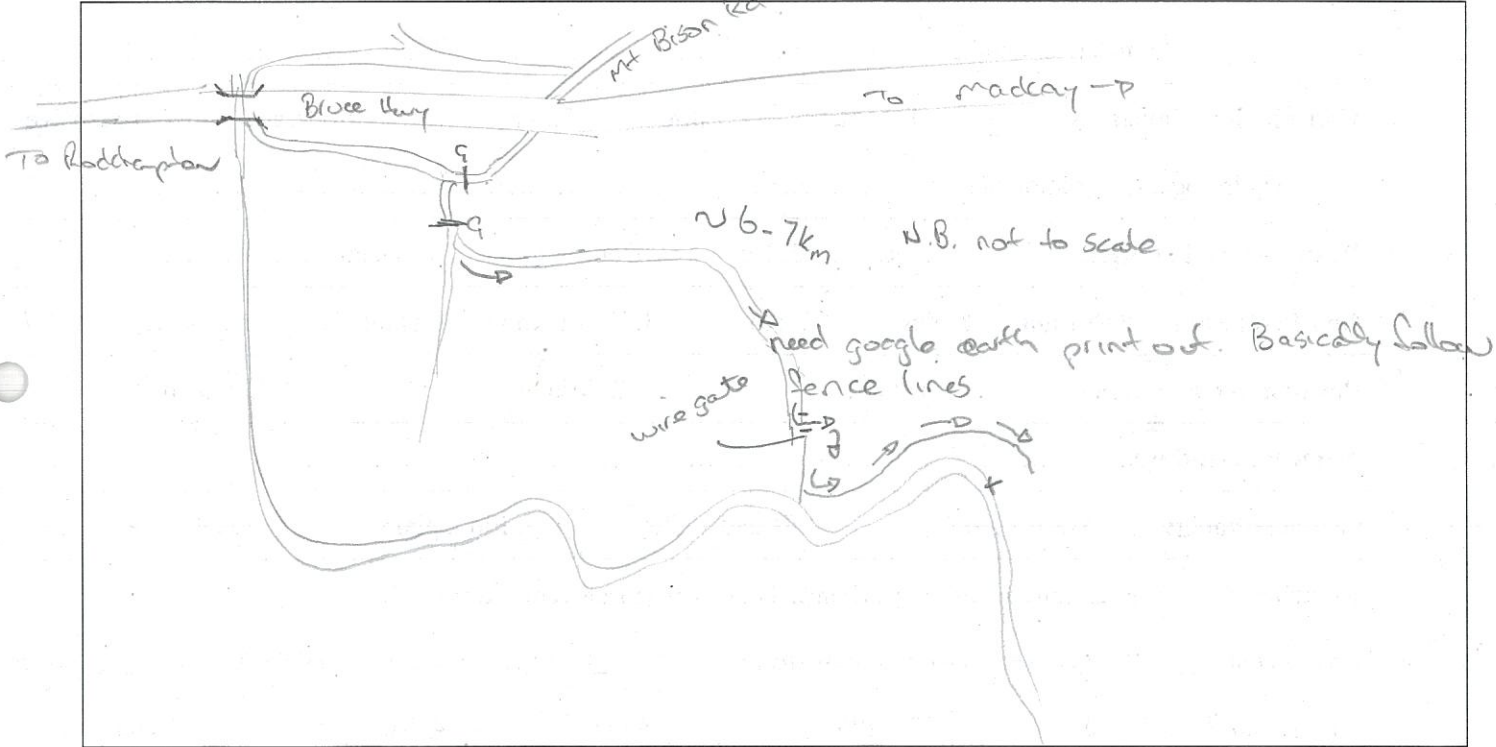 Mt Bison Rd
To Mackay →
Bruce Hwy
To Rockhampton
G
G
~ 6-7km
N.B. not to scale.
need google earth print out. Basically follow
fence lines.
wire gate